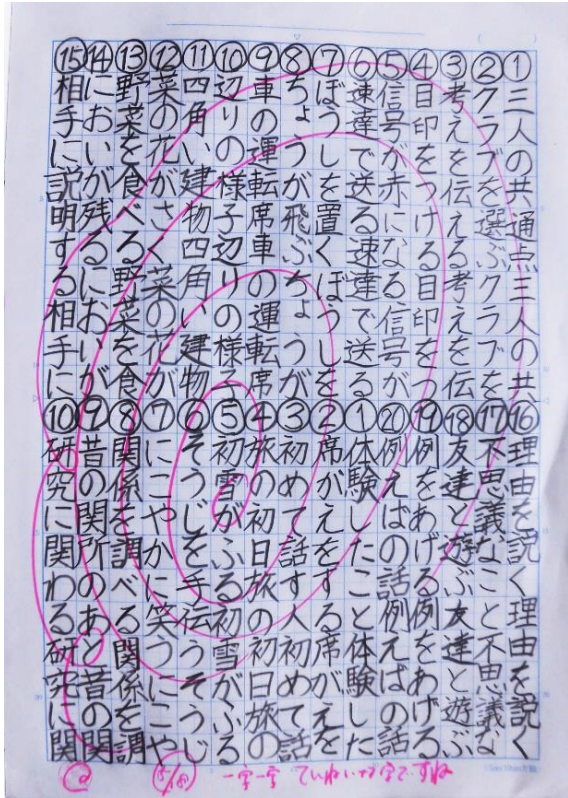 ①三人の共通点三人の共
②クラブを選ぶクラブを
③考えを伝える考えを伝
④目印をつける目印をつ
⑤信号が赤になる信号が
⑥速達で送る速達で送る
⑦ぼうしを置くぼうしを
⑧ちょうが飛ぶちょうが
⑨車の運転席車の運転席
⑩辺りの様子辺りの様子
⑪四角い建物四角い建物
⑫菜の花がさく菜の花が
⑬野菜を食べる野菜を食
⑭においが残るにおいが
⑮相手に説明する相手に
⑯理由を説く理由を説く
⑰不思議なこと不思議な
⑱友達と遊ぶ友達と遊ぶ
⑲例をあげる例をあげる
⑳例えばの話例えばの話
①体験したこと体験した
②席がえをする席がえを
③初めて話す人初めて話
④旅の初日旅の初日旅の
⑤初雪がふる初雪がふる
⑥そうじを手伝うそうじ
⑦にこやかに笑うにこや
⑧関係を調べる関係を調
⑨昔の関所のあと昔の関
⑩研究に関わる研究に関
一字一字 ていねいな字ですね
5/18